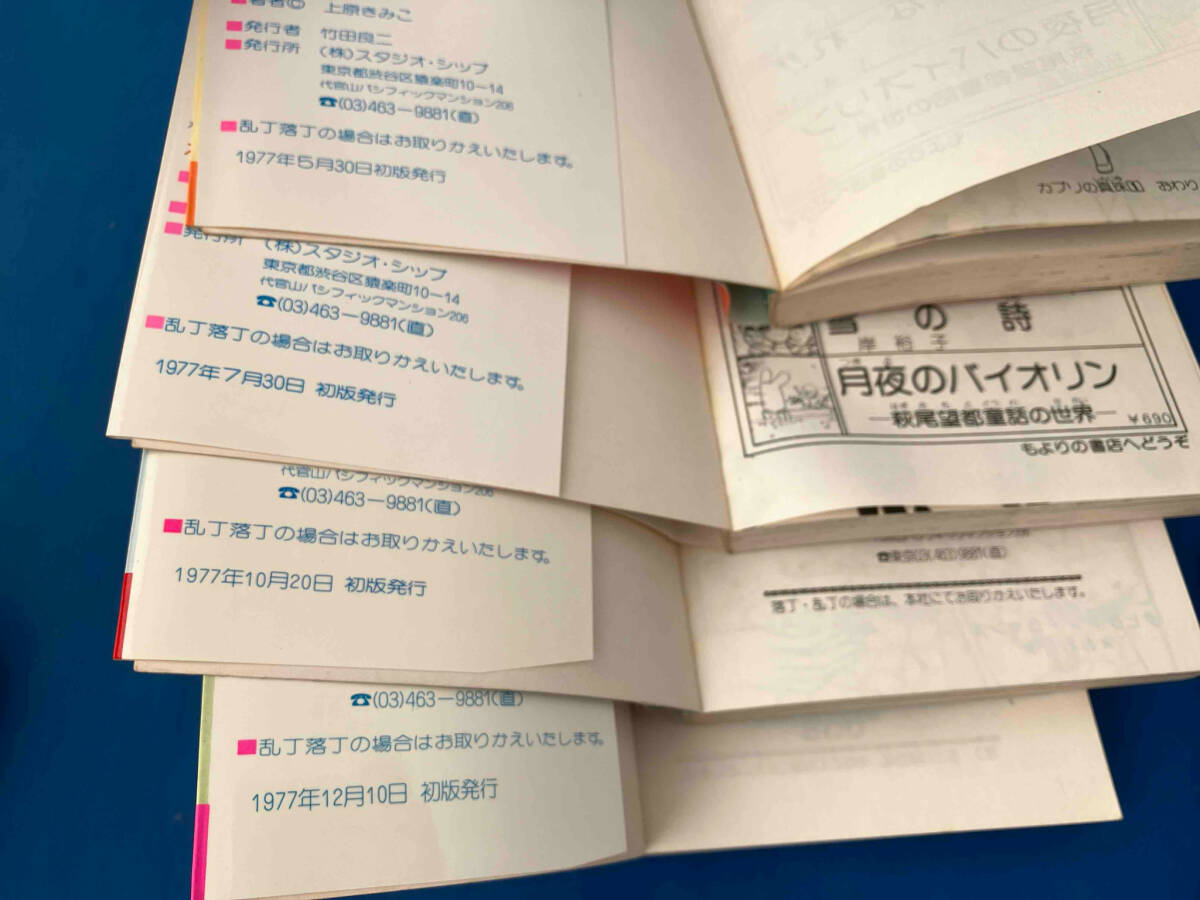 ■著者© 上原きみこ
■発行者 竹田良二
■発行所 (株)スタジオ・シップ
東京都渋谷区猿楽町10−14
代官山パシフィックマンション206
☎(03)463−9881(直)
■乱丁落丁の場合はお取りかえいたします。
1977年5月30日初版発行
月夜のバイオリン
カプリの真珠① おわり
発行所 (株)スタジオ・シップ
東京都渋谷区猿楽町10−14
代官山パシフィックマンション206
☎(03)463−9881(直)
■乱丁落丁の場合はお取りかえいたします。
1977年7月30日 初版発行
雪の詩
岸裕子
月夜のバイオリン
―萩尾望都童話の世界―
¥690
もよりの書店へどうぞ
代官山パシフィックマンション206
☎(03)463−9881(直)
■乱丁落丁の場合はお取りかえいたします。
1977年10月20日 初版発行
☎東京(03)(463)9881(直)
落丁・乱丁の場合は、本社にてお取りかえいたします。
☎(03)463−9881(直)
■乱丁落丁の場合はお取りかえいたします。
1977年12月10日 初版発行